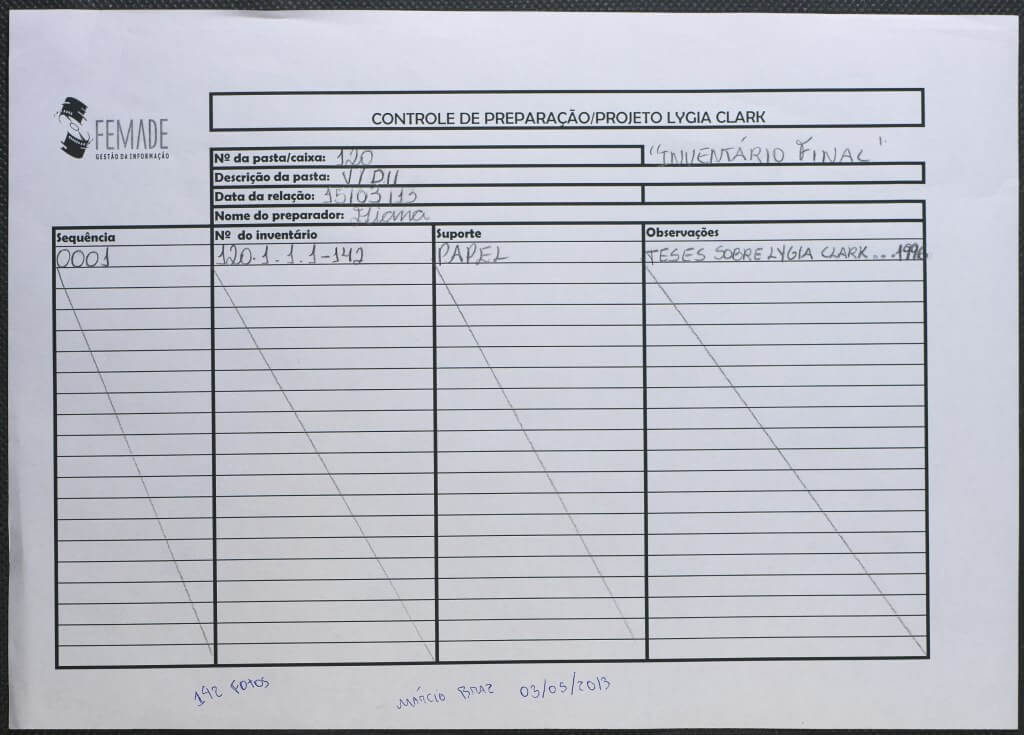 FEMADE
GESTÃO DA INFORMAÇÃO
CONTROLE DE PREPARAÇÃO/PROJETO LYGIA CLARK
Nº da pasta/caixa: 120 "INVENTÁRIO FINAL"
Descrição da pasta: V/DII
Data da relação: 15/03/13
Nome do preparador:
Sequência Nº do inventário Suporte Observações
0001 120.1.1.1-142 PAPEL TESES SOBRE LYGIA CLARK...1996
142 FOTOS MÁRCIO BRAZ 03/05/2013